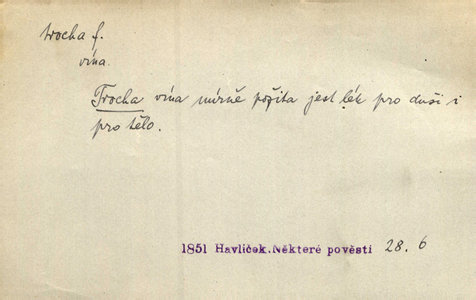 trocha f.
vína.
Trocha vína mírně požita jest lék pro duši i
pro tělo.
1851 Havlíček. Některé pověsti 28. 6